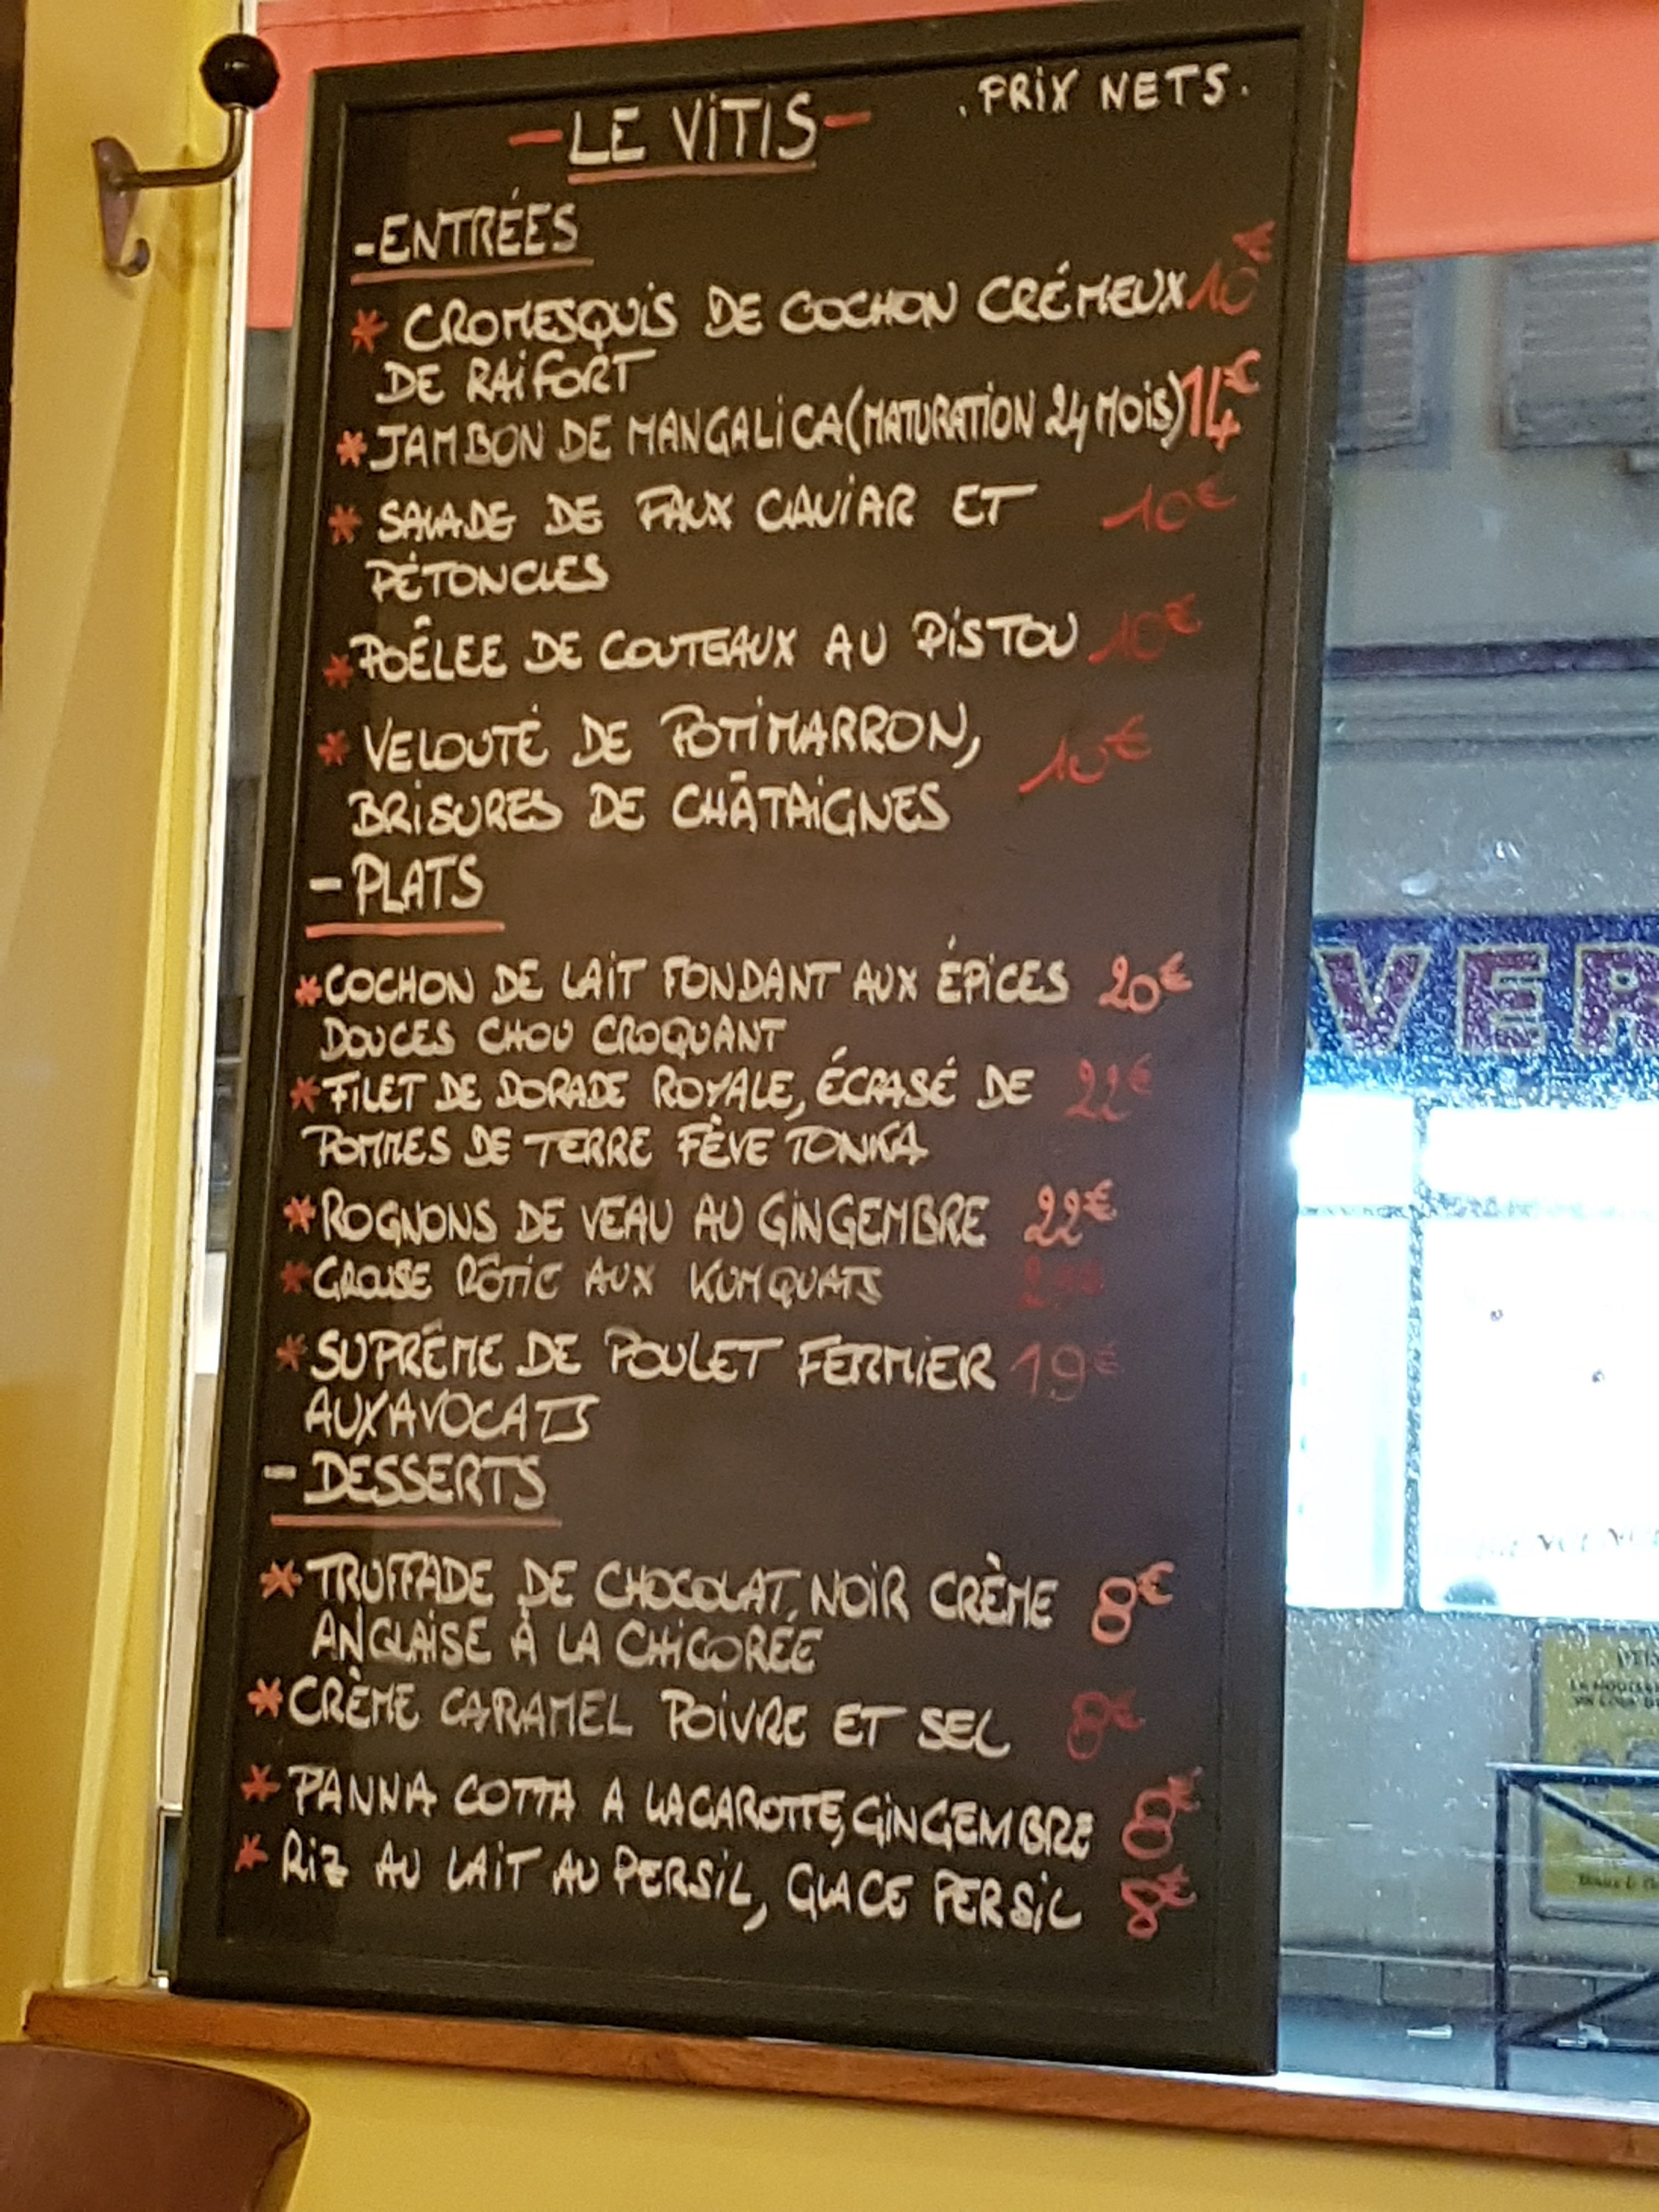 -LE VITIS-
. PRIX NETS.
-ENTRÉES
* CROMESQUIS DE COCHON CRÉMEUX 10€
DE RAIFORT
* JAMBON DE MANGALICA (MATURATION 24 MOIS) 14€
* SALADE DE FAUX CAVIAR ET 10€
PÉTONCLES
* POÊLEE DE COUTEAUX AU PISTOU 10€
* VELOUTÉ DE POTIMARRON, 10€
BRISURES DE CHÂTAIGNES
- PLATS
* COCHON DE LAIT FONDANT AUX ÉPICES 20€
DOUCES CHOU CROQUANT
* FILET DE DORADE ROYALE, ÉCRASÉ DE 22€
POMMES DE TERRE FÈVE TONKA
* ROGNONS DE VEAU AU GINGEMBRE 22€
* GROUSE RÔTIE AUX KUMQUATS
* SUPRÊME DE POULET FERMIER 19€
AUX AVOCATS
- DESSERTS
* TRUFFADE DE CHOCOLAT NOIR CRÈME 8€
ANGLAISE À LA CHICORÉE
* CRÈME CARAMEL POIVRE ET SEL 8€
* PANNA COTTA A LA CAROTTE, GINGEMBRE 8€
* RIZ AU LAIT AU PERSIL, GLACE PERSIL 8€
VER